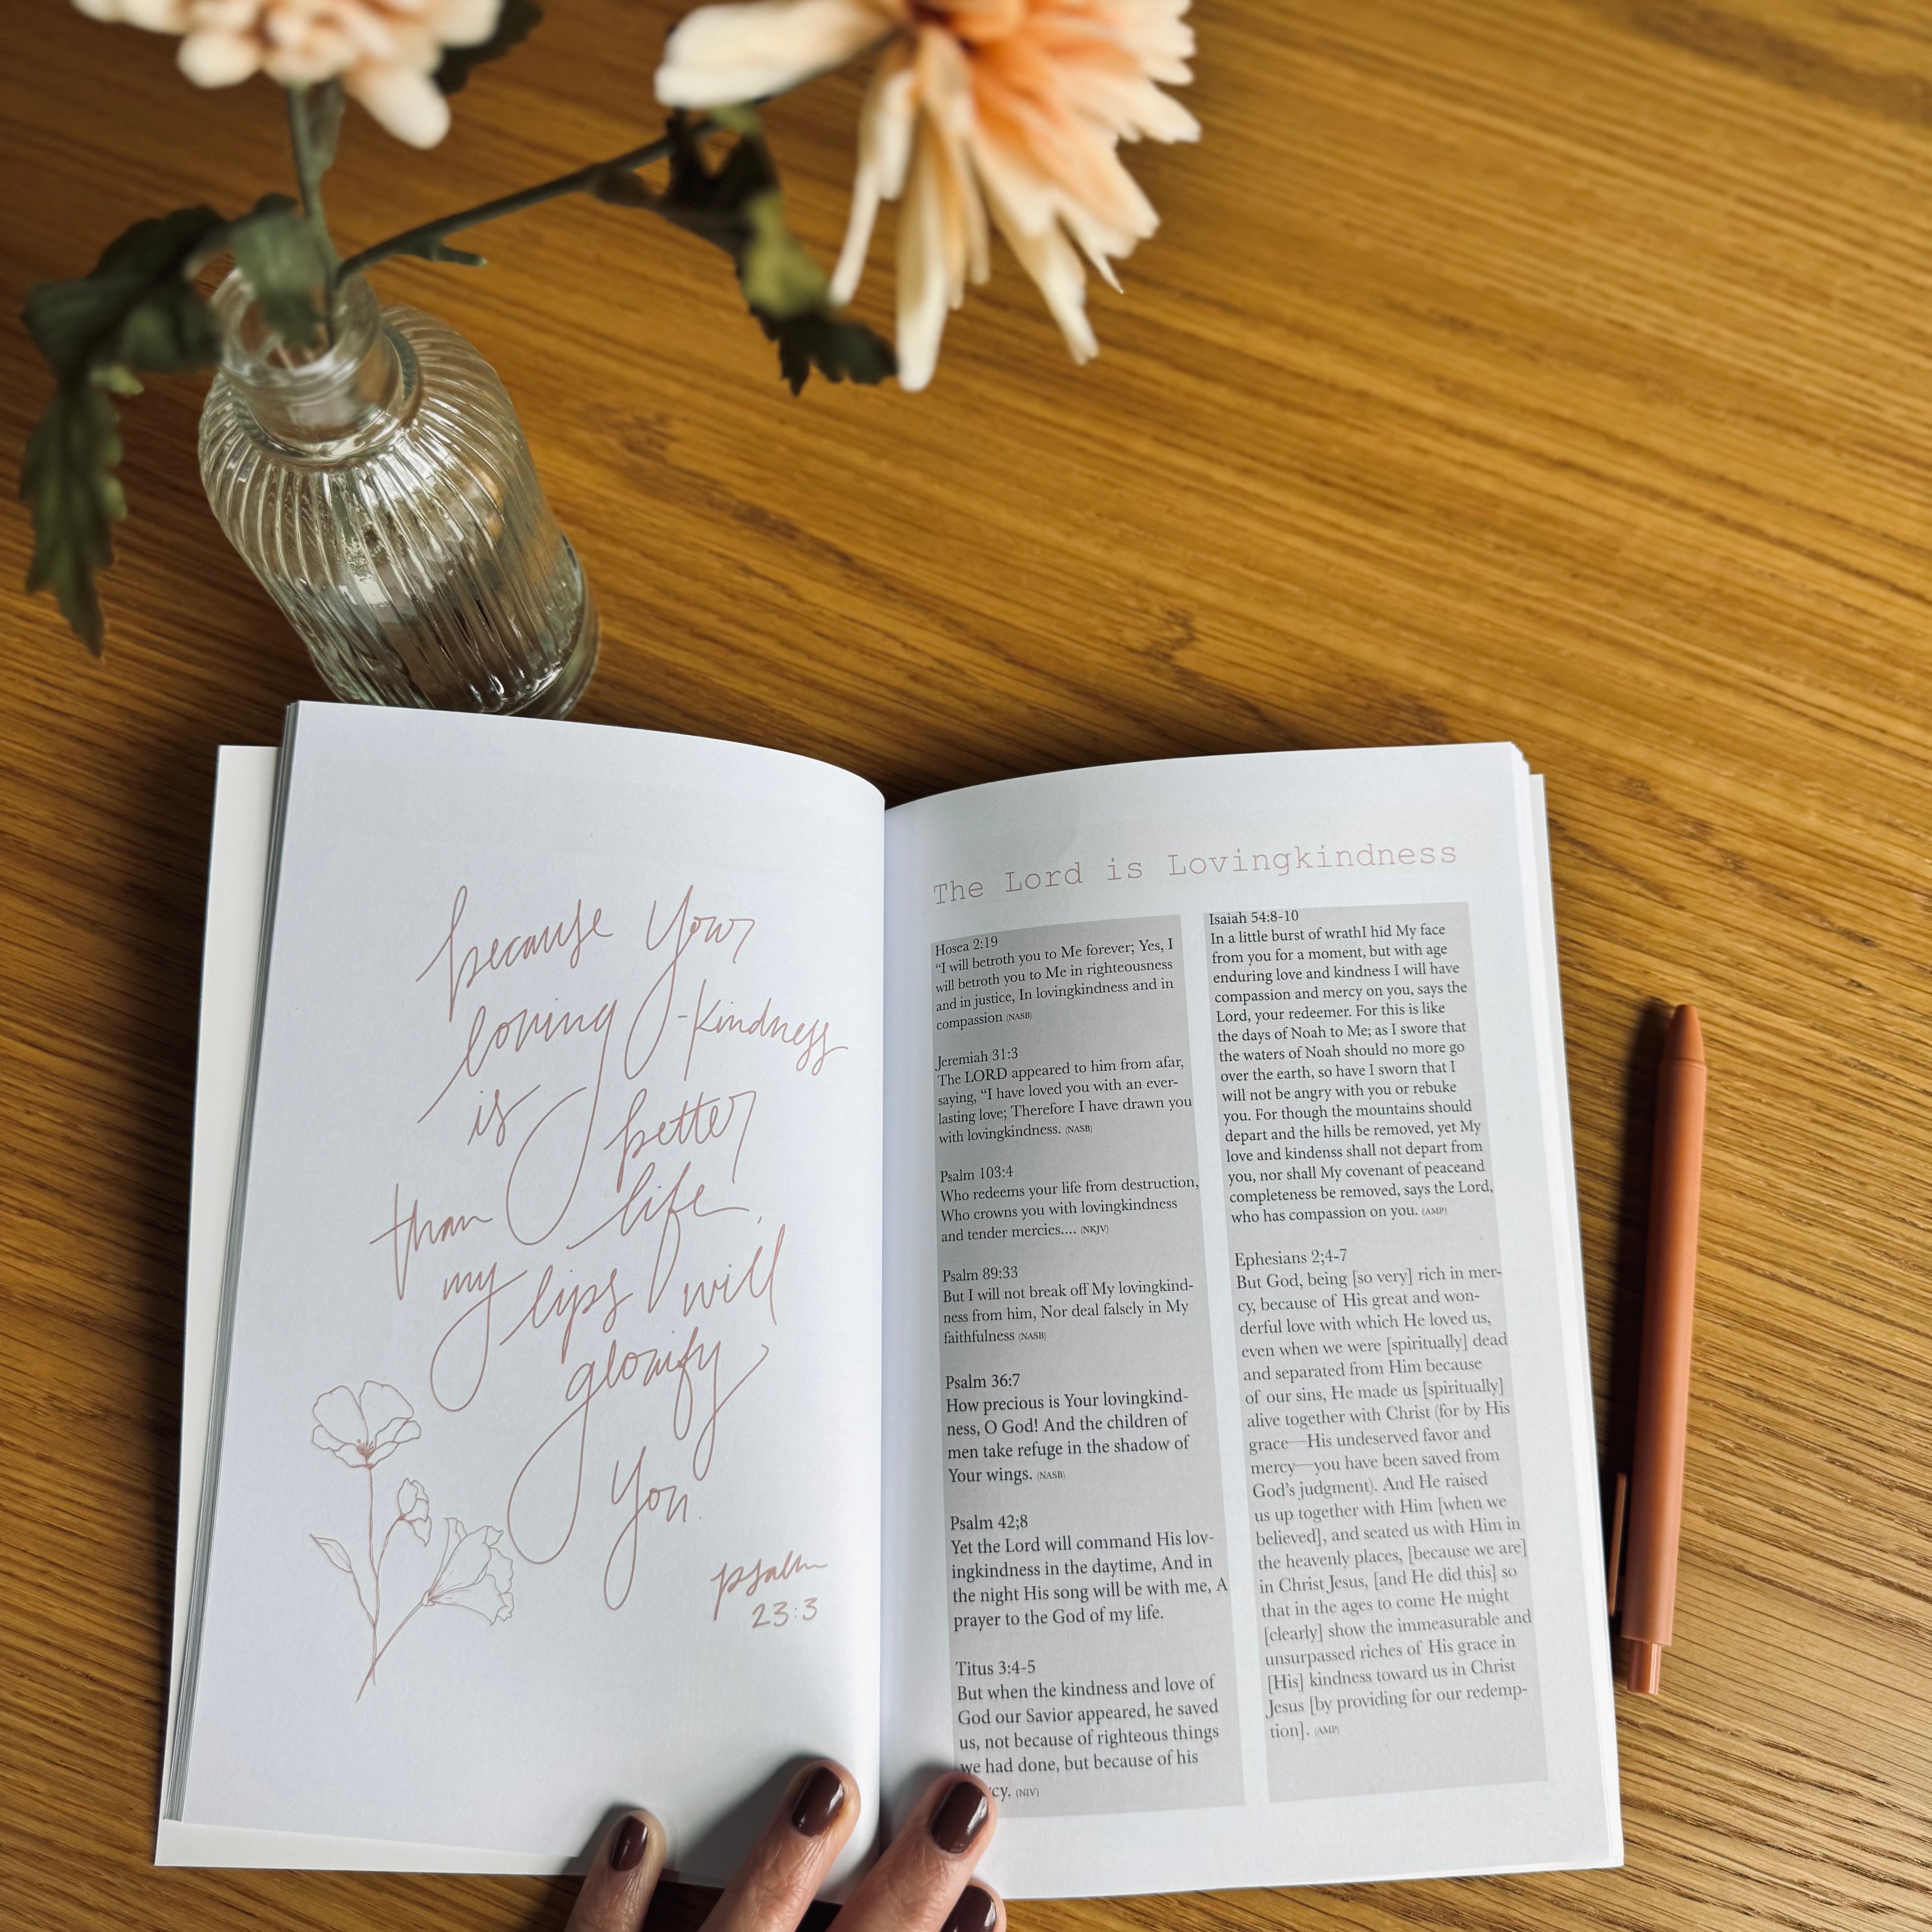 because Your
loving-kindness
is better
than life,
my lips will
glorify
You.
psalm
23:3
The Lord is Lovingkindness
Hosea 2:19
“I will betroth you to Me forever; Yes, I
will betroth you to Me in righteousness
and in justice, In lovingkindness and in
compassion (NASB)
Jeremiah 31:3
The LORD appeared to him from afar,
saying, “I have loved you with an ever-
lasting love; Therefore I have drawn you
with lovingkindness. (NASB)
Psalm 103:4
Who redeems your life from destruction,
Who crowns you with lovingkindness
and tender mercies.... (NKJV)
Psalm 89:33
But I will not break off My lovingkind-
ness from him, Nor deal falsely in My
faithfulness (NASB)
Psalm 36:7
How precious is Your lovingkind-
ness, O God! And the children of
men take refuge in the shadow of
Your wings. (NASB)
Psalm 42;8
Yet the Lord will command His lov-
ingkindness in the daytime, And in
the night His song will be with me, A
prayer to the God of my life.
Titus 3:4-5
But when the kindness and love of
God our Savior appeared, he saved
us, not because of righteous things
we had done, but because of his
cy. (NIV)
Isaiah 54:8-10
In a little burst of wrathI hid My face
from you for a moment, but with age
enduring love and kindness I will have
compassion and mercy on you, says the
Lord, your redeemer. For this is like
the days of Noah to Me; as I swore that
the waters of Noah should no more go
over the earth, so have I sworn that I
will not be angry with you or rebuke
you. For though the mountains should
depart and the hills be removed, yet My
love and kindenss shall not depart from
you, nor shall My covenant of peaceand
completeness be removed, says the Lord,
who has compassion on you. (AMP)
Ephesians 2;4-7
But God, being [so very] rich in mer-
cy, because of His great and won-
derful love with which He loved us,
even when we were [spiritually] dead
and separated from Him because
of our sins, He made us [spiritually]
alive together with Christ (for by His
grace—His undeserved favor and
mercy—you have been saved from
God’s judgment). And He raised
us up together with Him [when we
believed], and seated us with Him in
the heavenly places, [because we are]
in Christ Jesus, [and He did this] so
that in the ages to come He might
[clearly] show the immeasurable and
unsurpassed riches of His grace in
[His] kindness toward us in Christ
Jesus [by providing for our redemp-
tion]. (AMP)